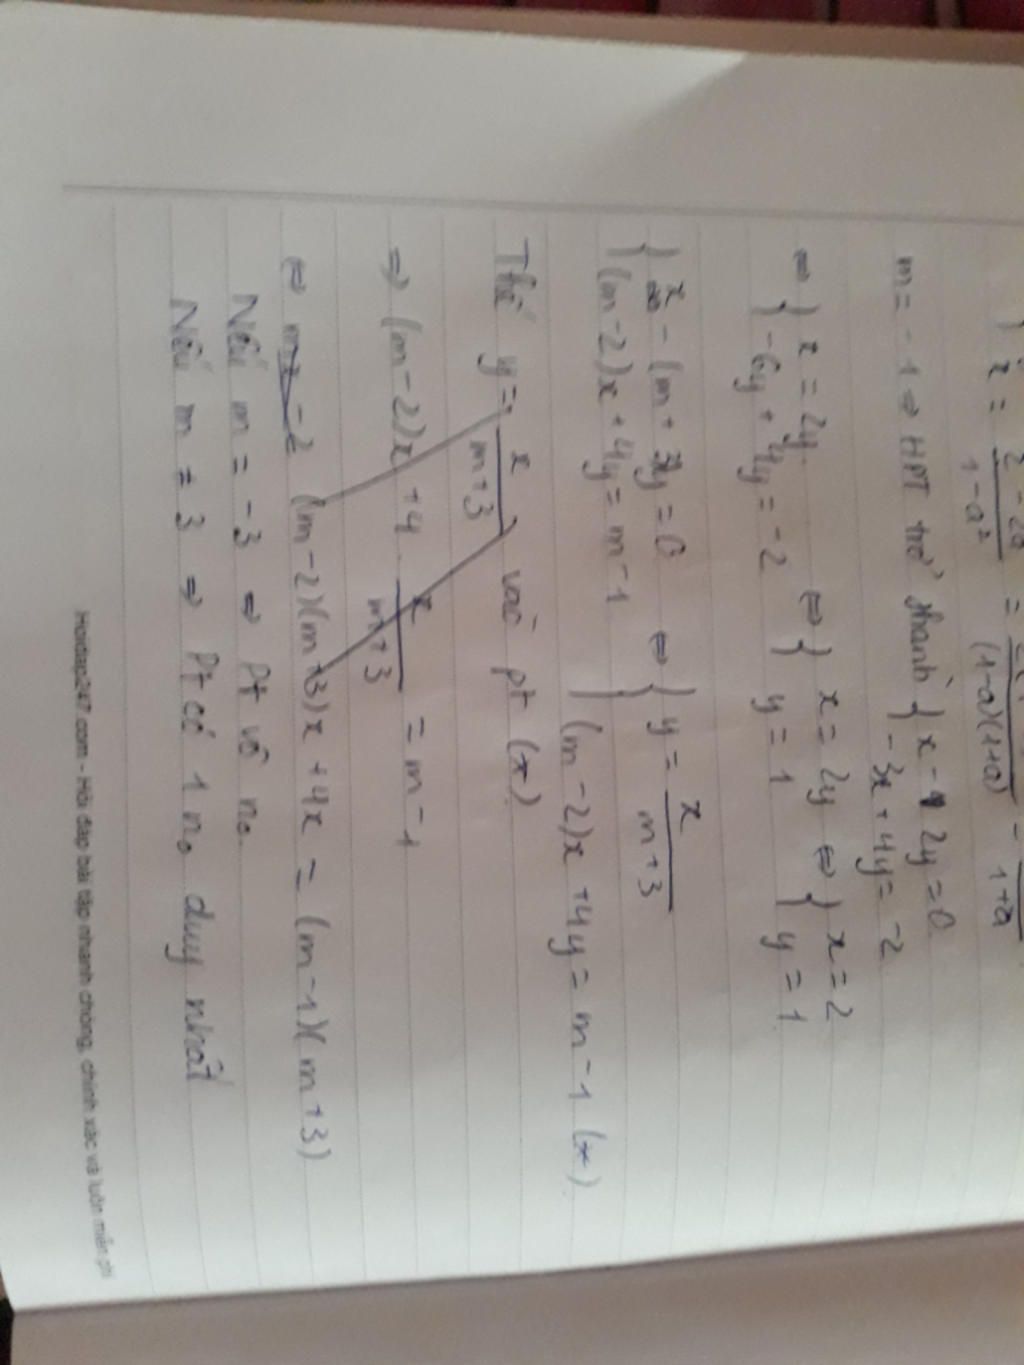 x = 2 - 2a / 1 - a² = / (1-a)(1+a) - / 1+a
m = -1 ⇒ HPT trở thành { x - 2y = 0
-3x + 4y = -2
⇔ { x = 2y ⇔ { x = 2y ⇔ { x = 2
-6y + 4y = -2 y = 1 y = 1
{ x - (m + 3)y = 0 ⇔ { y = x / m+3
(m-2)x + 4y = m - 1 (m-2)x + 4y = m - 1 (*)
Thế y = x / m+3 vào pt (*)
⇒ (m-2)x + 4 . x / m+3 = m - 1
⇔ (m-2)(m+3)x + 4x = (m-1)(m+3)
Nếu m = -3 ⇒ Pt vô no
Nếu m = 3 ⇒ Pt có 1 no duy nhất
Hoidap247.com - Hỏi đáp bài tập nhanh chóng, chính xác và luôn miễn phí